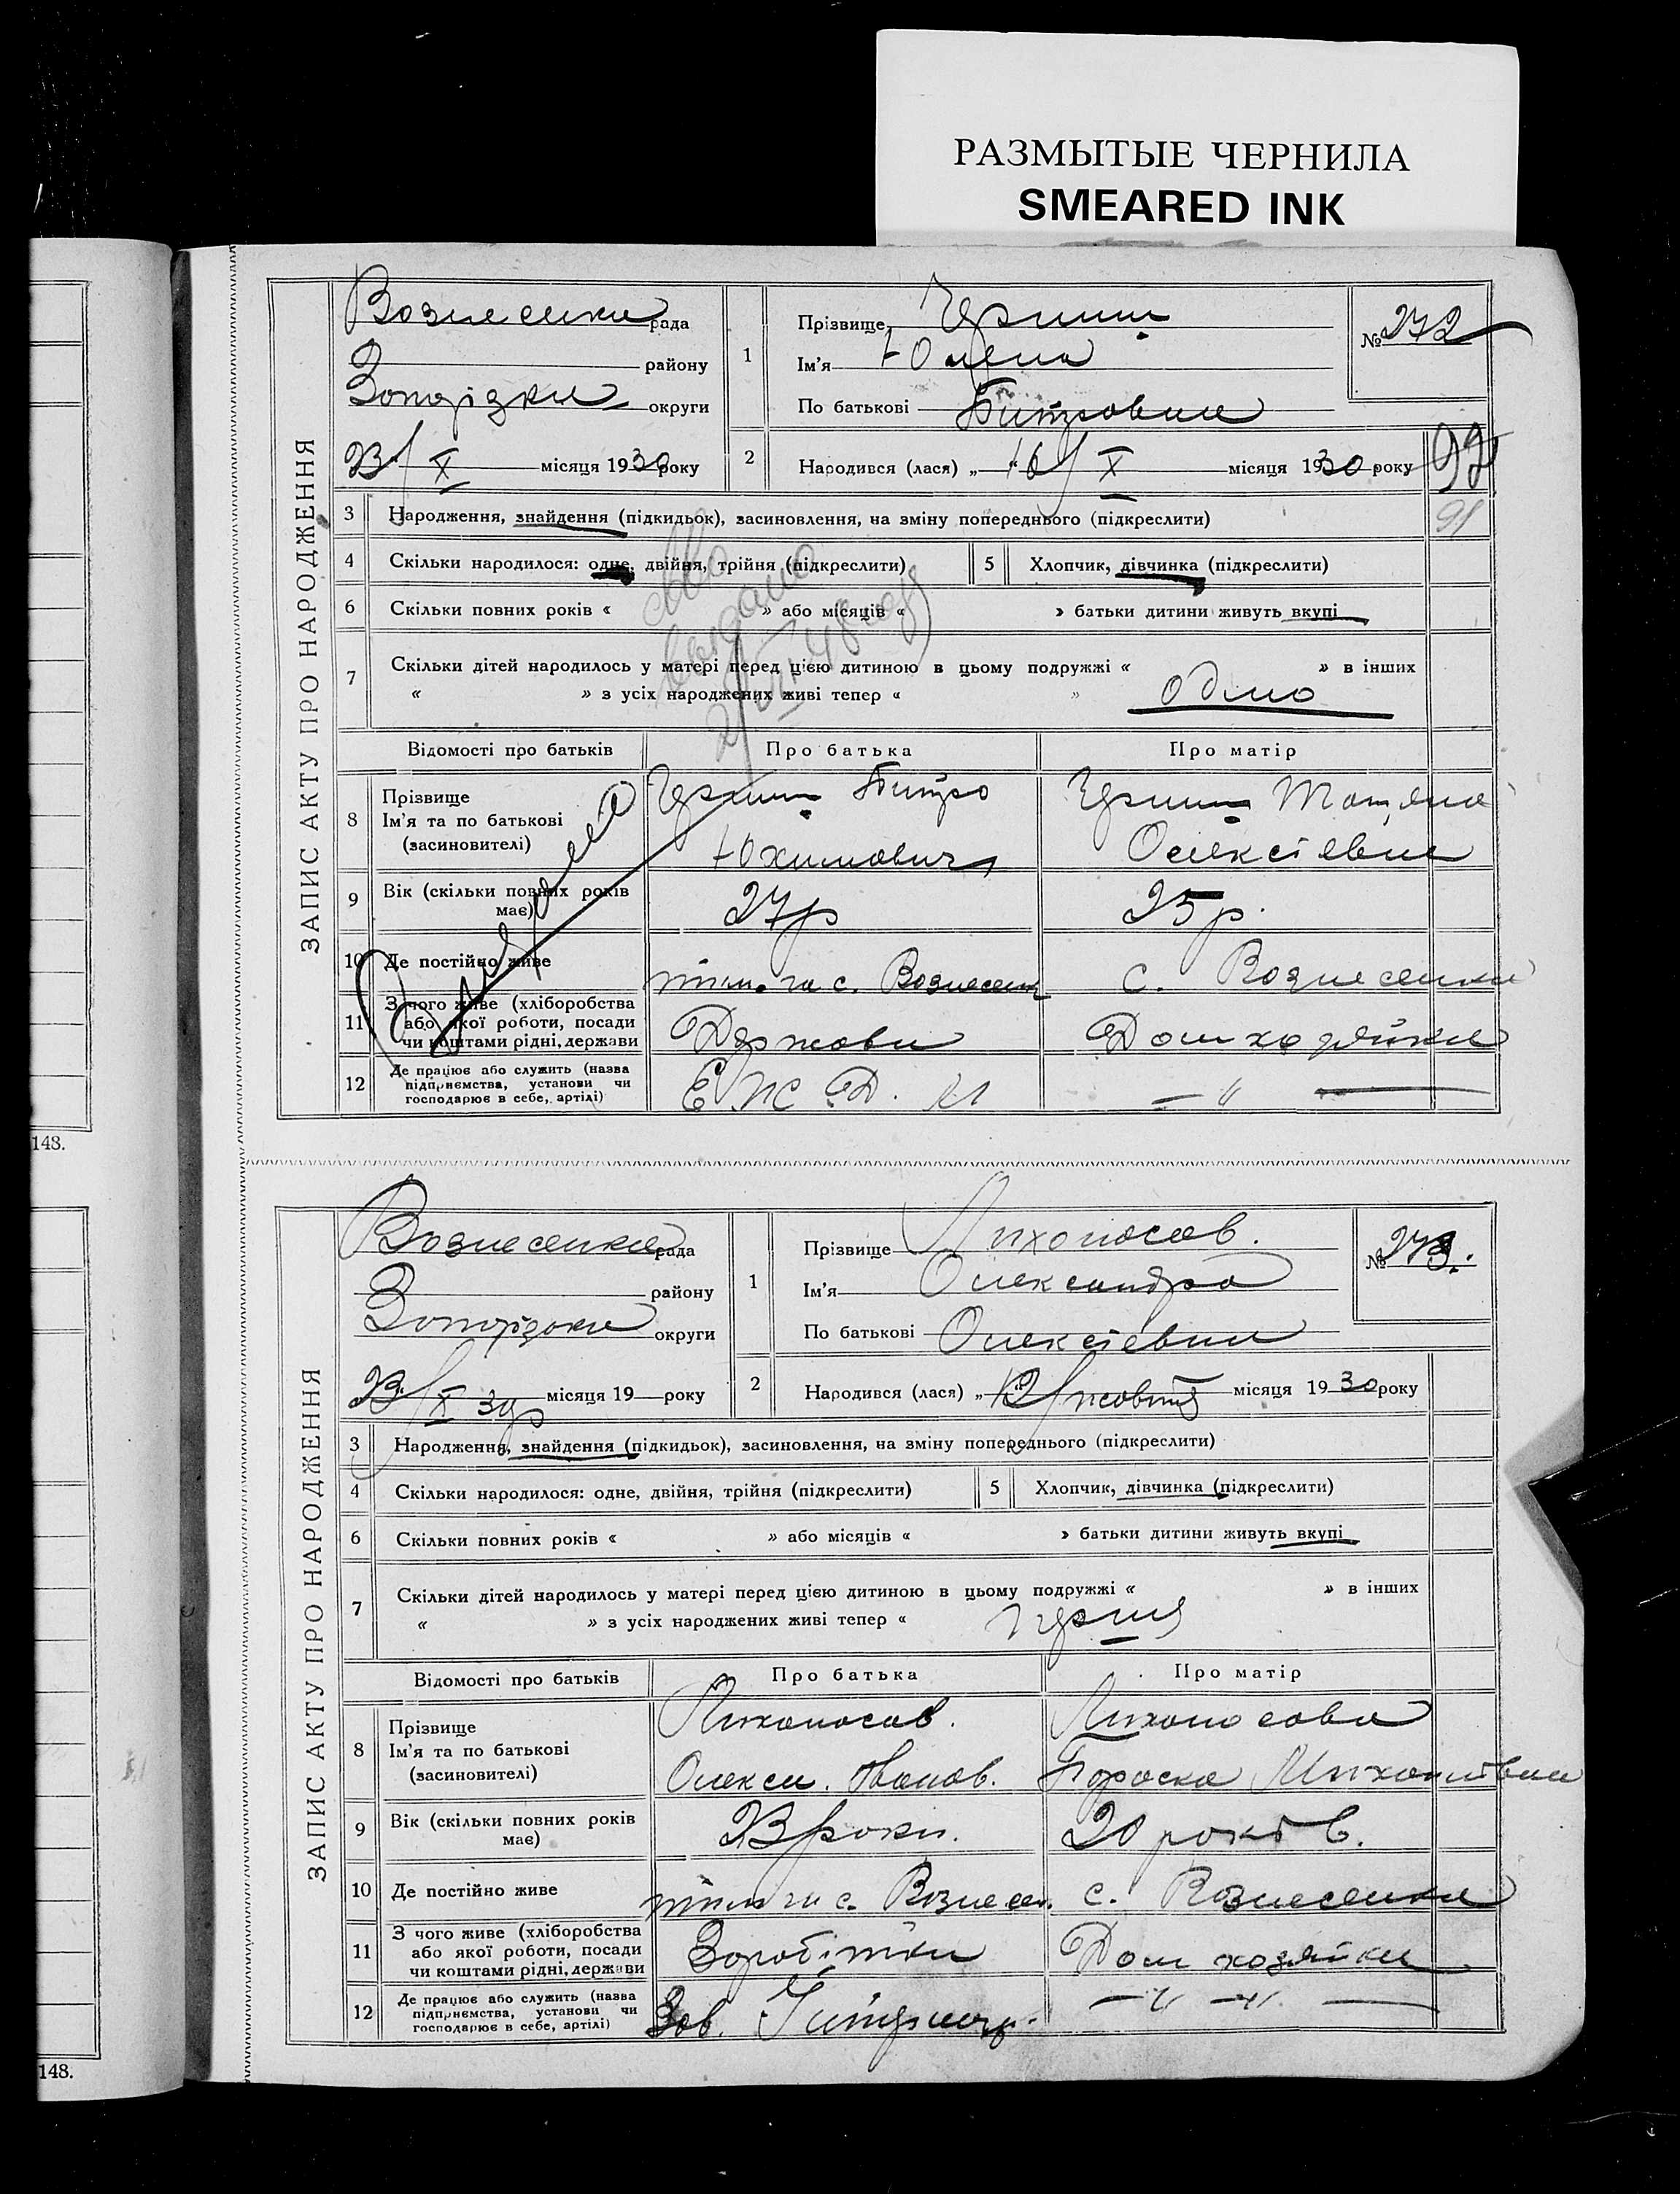 РАЗМЫТЫЕ ЧЕРНИЛА
SMEARED INK
ЗАПИС АКТУ ПРО НАРОДЖЕННЯ
Вознесенка рада
району
Запорізька округи
23/X місяця 1930 року
1 Прізвище
Ім'я
По батькові
№ 272
2 Народився (лася) „16/X місяця 1930 року
92
91
3 Народження, знайдення (підкидьок), засиновлення, на зміну попереднього (підкреслити)
4 Скільки народилося: одне, двійня, трійня (підкреслити) 5 Хлопчик, дівчинка (підкреслити)
6 Скільки повних років « » або місяців « » батьки дитини живуть вкупі
7 Скільки дітей народилось у матері перед цією дитиною в цьому подружжі « » в інших
« » з усіх народжених живі тепер « » одно
Відомості про батьків Про батька Про матір
8 Прізвище
Ім'я та по батькові
(засновителі)
Юхимович Олексієвна
9 Вік (скільки повних років має) 27 р 25 р.
10 Де постійно живе с. Вознесен с. Вознесенка
11 З чого живе (хліборобства
або якої роботи, посади
чи коштами рідні, держави
Держави Дом хозяйка
12 Де працює або служить (назва
підприємства, установи чи
господарює в себе, артілі)
148.
ЗАПИС АКТУ ПРО НАРОДЖЕННЯ
Вознесенка рада
району
Запорізька округи
23/X 30р місяця 19 року
1 Прізвище Лихоносов.
Ім'я Олександра
По батькові Олексієвна
№ 273.
2 Народився (лася) „12/жовтня місяця 1930 року
3 Народження, знайдення (підкидьок), засиновлення, на зміну попереднього (підкреслити)
4 Скільки народилося: одне, двійня, трійня (підкреслити) 5 Хлопчик, дівчинка (підкреслити)
6 Скільки повних років « » або місяців « » батьки дитини живуть вкупі
7 Скільки дітей народилось у матері перед цією дитиною в цьому подружжі « » в інших
« » з усіх народжених живі тепер «
Відомості про батьків Про батька Про матір
8 Прізвище
Ім'я та по батькові
(засиновителі)
Лихоносов. Лихоносова
Олекси. Іванов.
9 Вік (скільки повних років має) 23 роки. 20 років.
10 Де постійно живе с. Вознесен. с. Вознесенка
11 З чого живе (хліборобства
або якої роботи, посади
чи коштами рідні, держави
Заробітки Дом хозяйка
12 Де працює або служить (назва
підприємства, установи чи
господарює в себе, артілі)
Зав.
148.